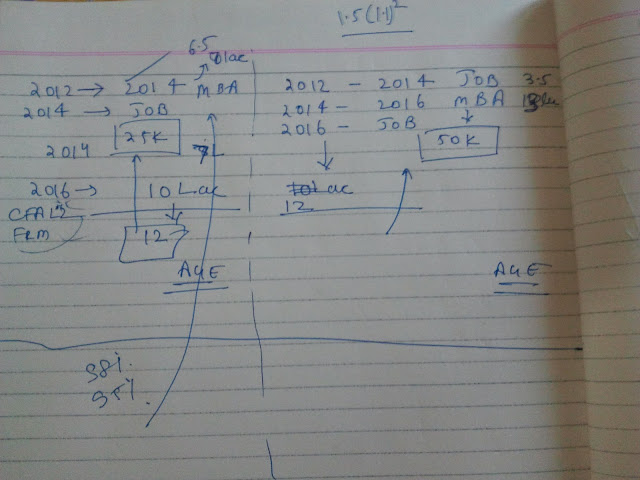 1.5(1.1)²
6.5
lac
2012 → 2014 MBA
2014 → JOB
25K
2014
2016 → 10 Lac
CFA L2
FRM
12
AGE
38%
35%
2012 - 2014 JOB 3.5
2014 - 2016 MBA
2016 - JOB
50K
10 Lac
12
AGE